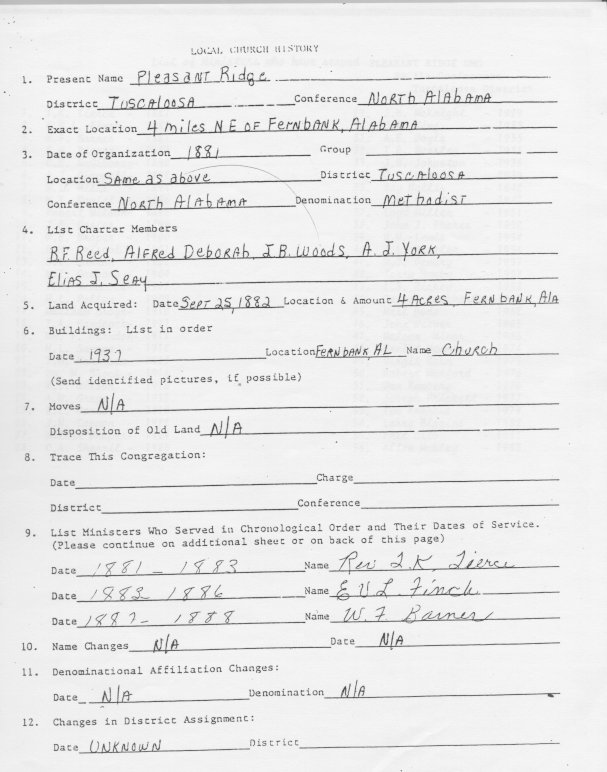 LOCAL CHURCH HISTORY
1. Present Name Pleasant Ridge
District Tuscaloosa Conference North Alabama
2. Exact Location 4 miles NE of Fernbank, Alabama
3. Date of Organization 1881 Group
Location Same as above District Tuscaloosa
Conference North Alabama Denomination Methodist
4. List Charter Members
R.F. Reed, Alfred Deborah, J.B. Woods, A.J. York,
Elias J. Seay
5. Land Acquired: Date Sept 25, 1882 Location & Amount 4 Acres, Fernbank, Ala
6. Buildings: List in order
Date 1937 Location Fernbank, AL Name Church
(Send identified pictures, if possible)
7. Moves N/A
Disposition of Old Land N/A
8. Trace This Congregation:
Date Charge
District Conference
9. List Ministers Who Served in Chronological Order and Their Dates of Service.
(Please continue on additional sheet or on back of this page)
Date 1881 - 1883 Name Rev
Date 1883 1886 Name E U L. Finch
Date 1887 - 1888 Name W F Barnes
10. Name Changes N/A Date N/A
11. Denominational Affiliation Changes:
Date N/A Denomination N/A
12. Changes in District Assignment:
Date Unknown District